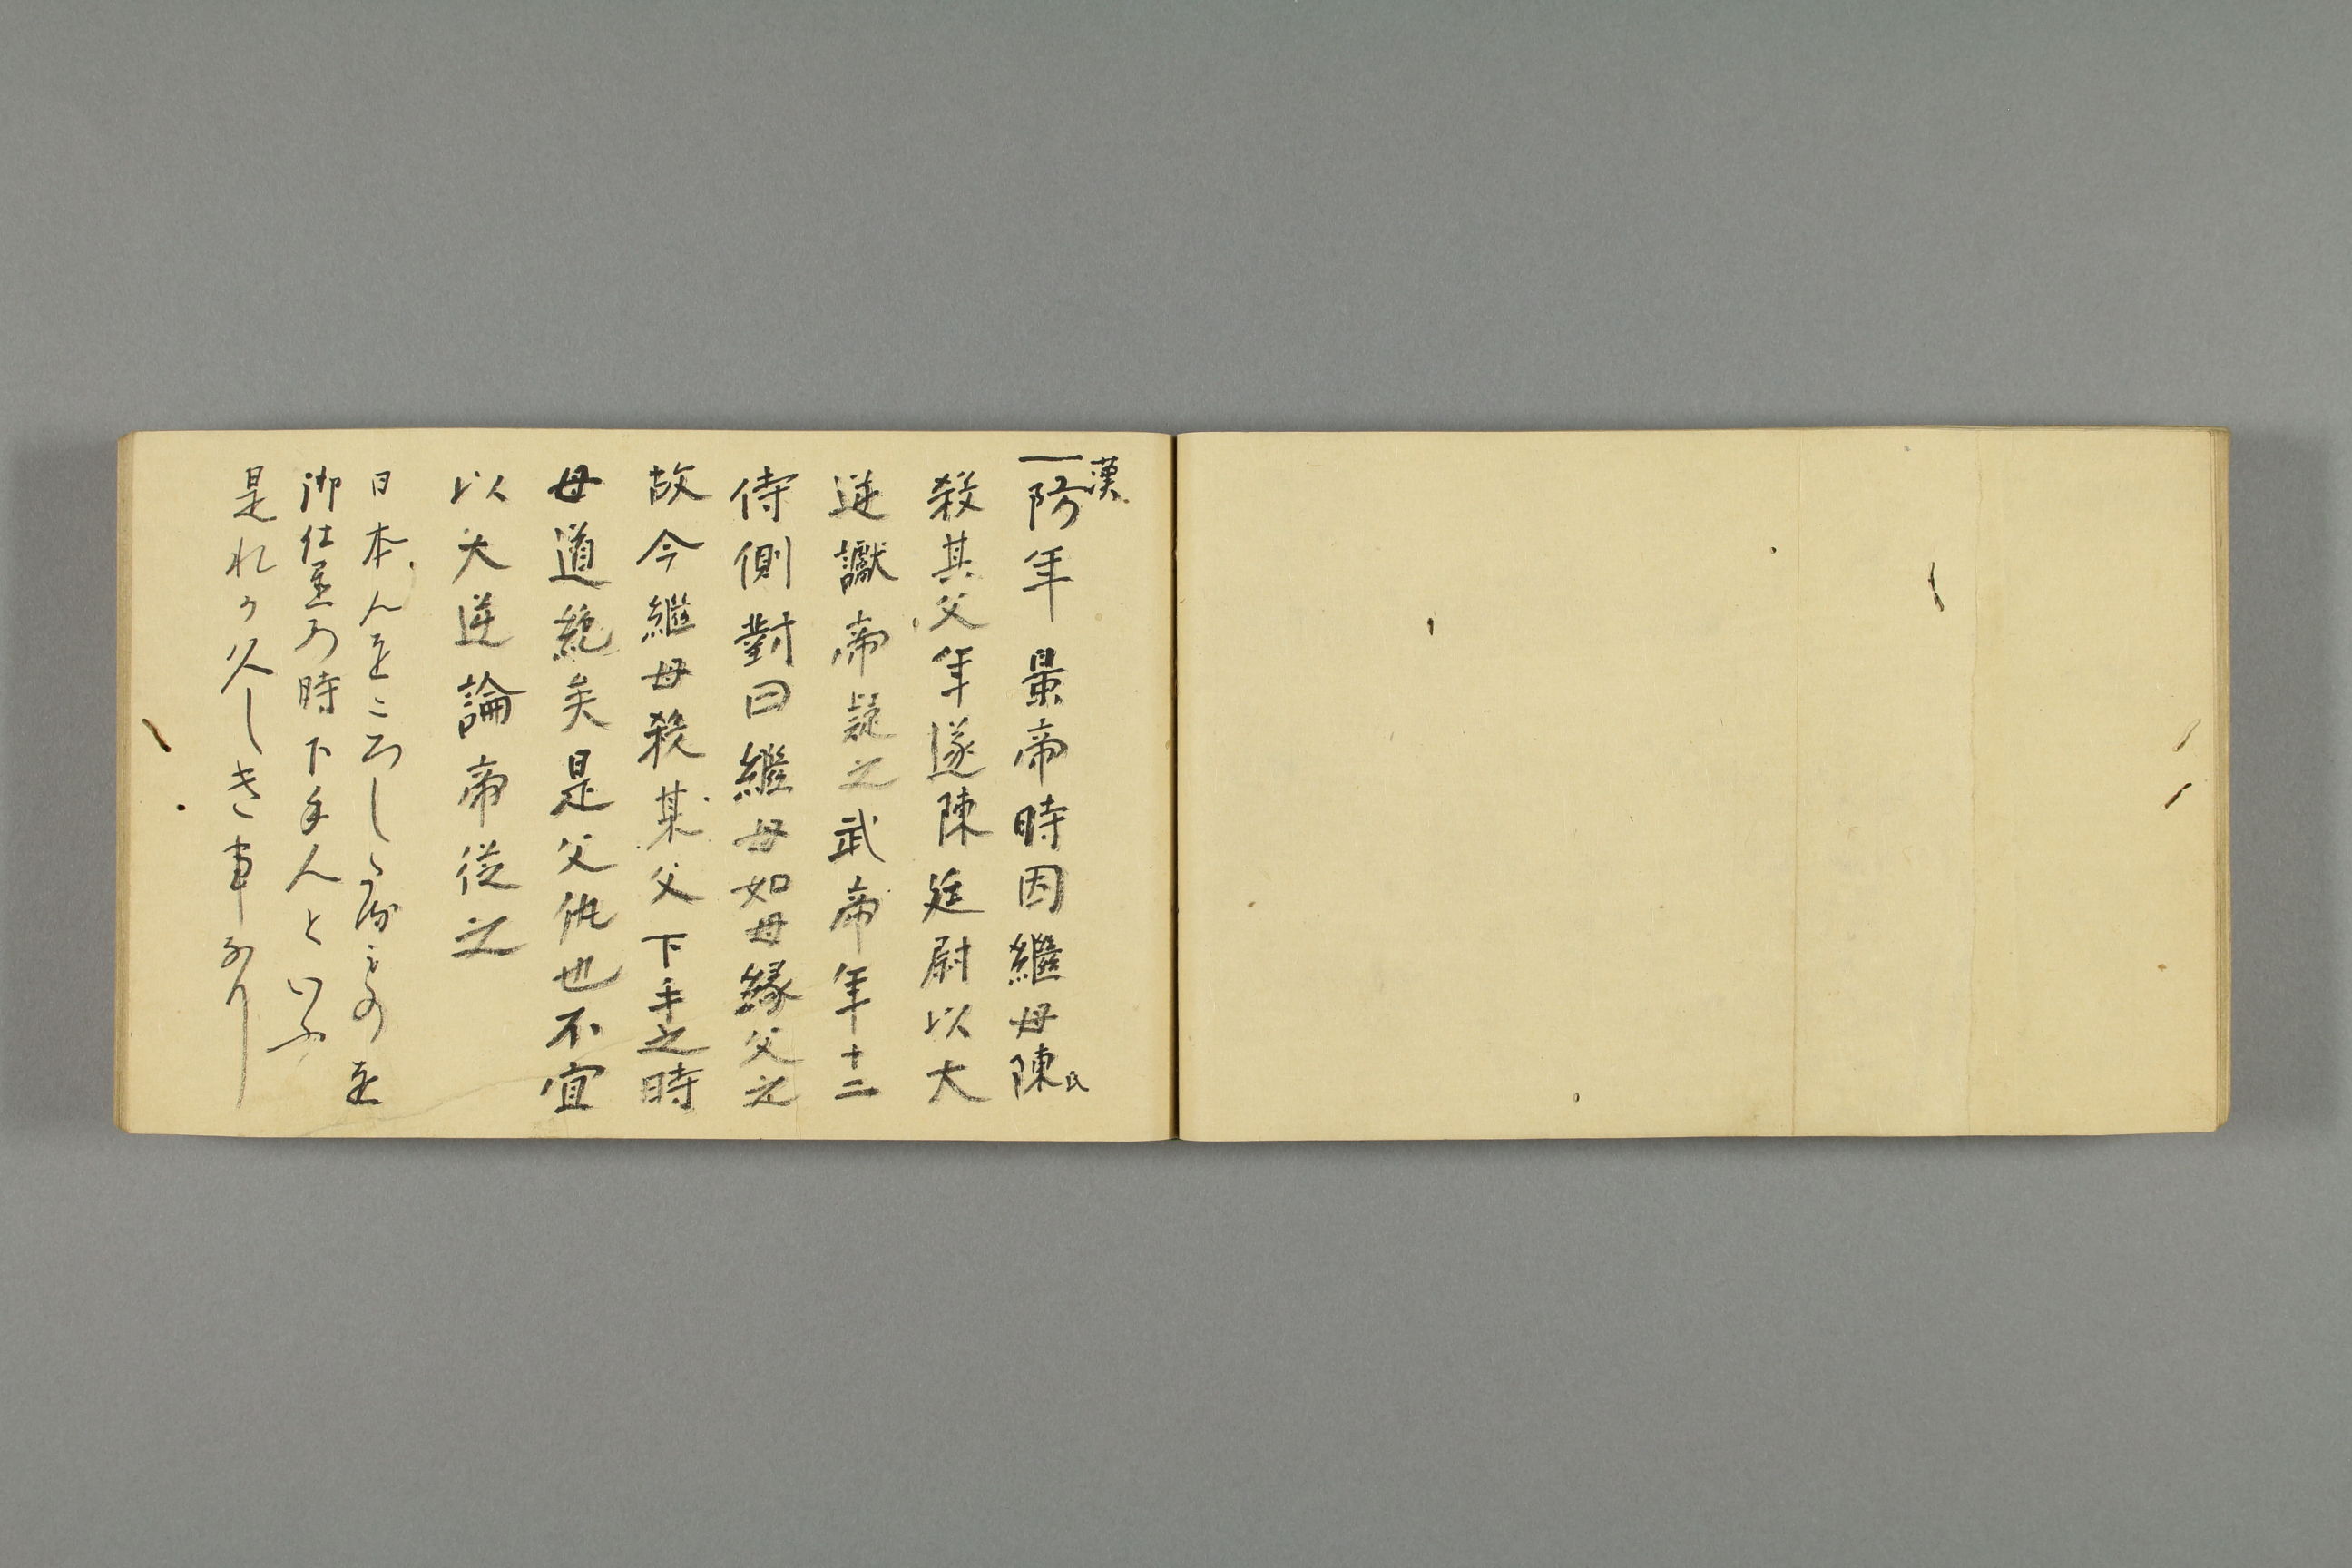 漢
一防年 景帝時因繼母陳氏
殺其父年遂陳廷尉以大
逆讞帝疑之武帝年十二
侍側對曰繼母如母縁父之
故今繼母殺其父下手之時
母道絶矣是父仇也不宜
以大逆論帝従之
日本人をころし もの を
御仕置の時下手人といふ
是れか久しき事なり